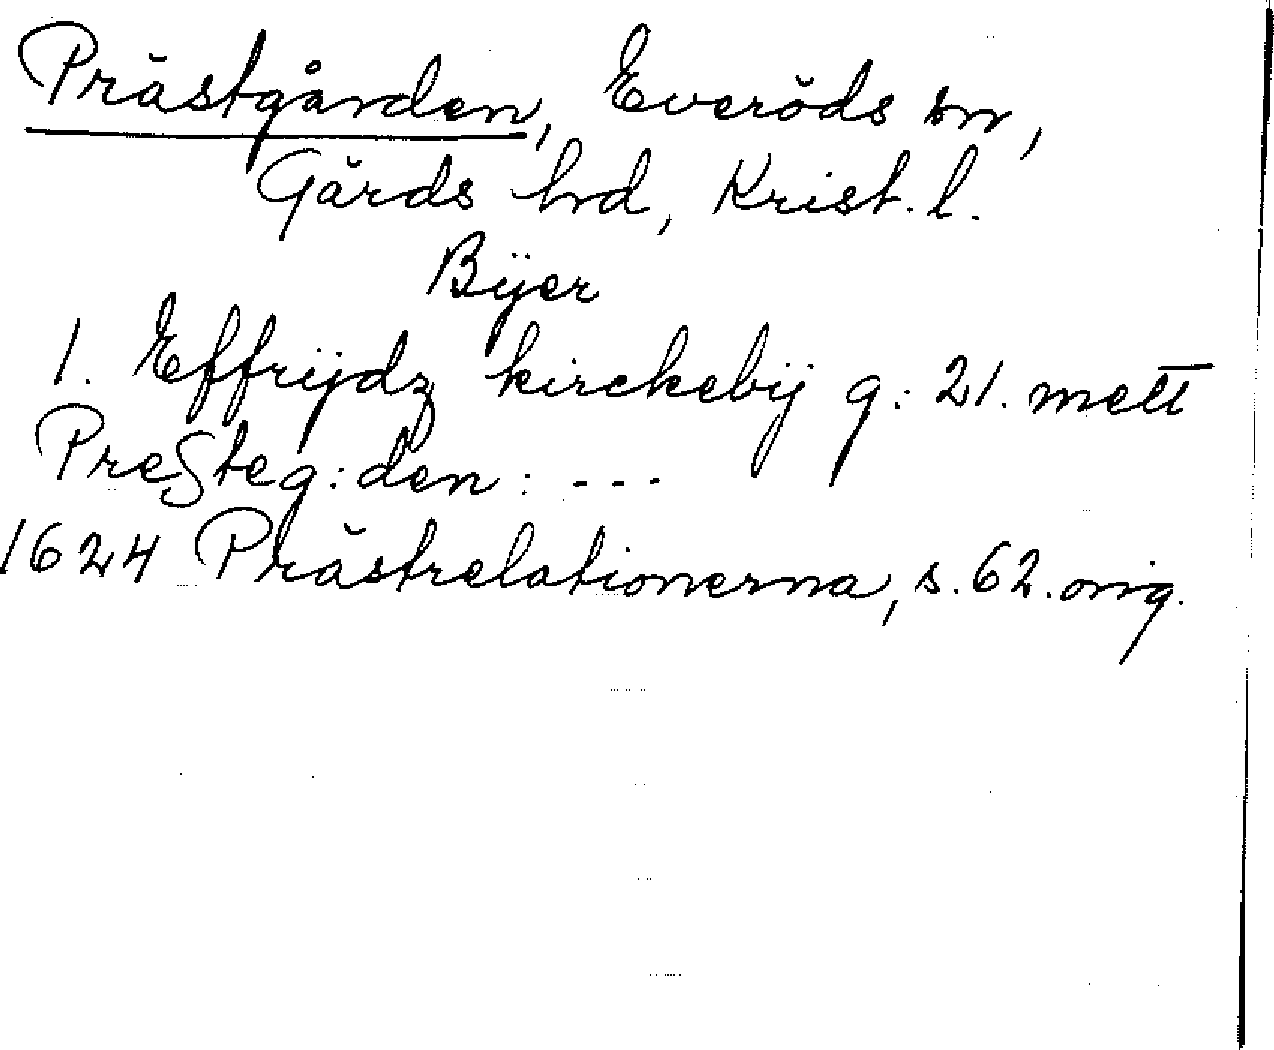 Prästgården, Everöds sn,
Gärds hd, Krist. l.
Bÿer
1. Effrÿdz kirckebÿ g: 21. mett
PreSteg:den: ---
1624 Prästrelationerna, s. 62. orig.